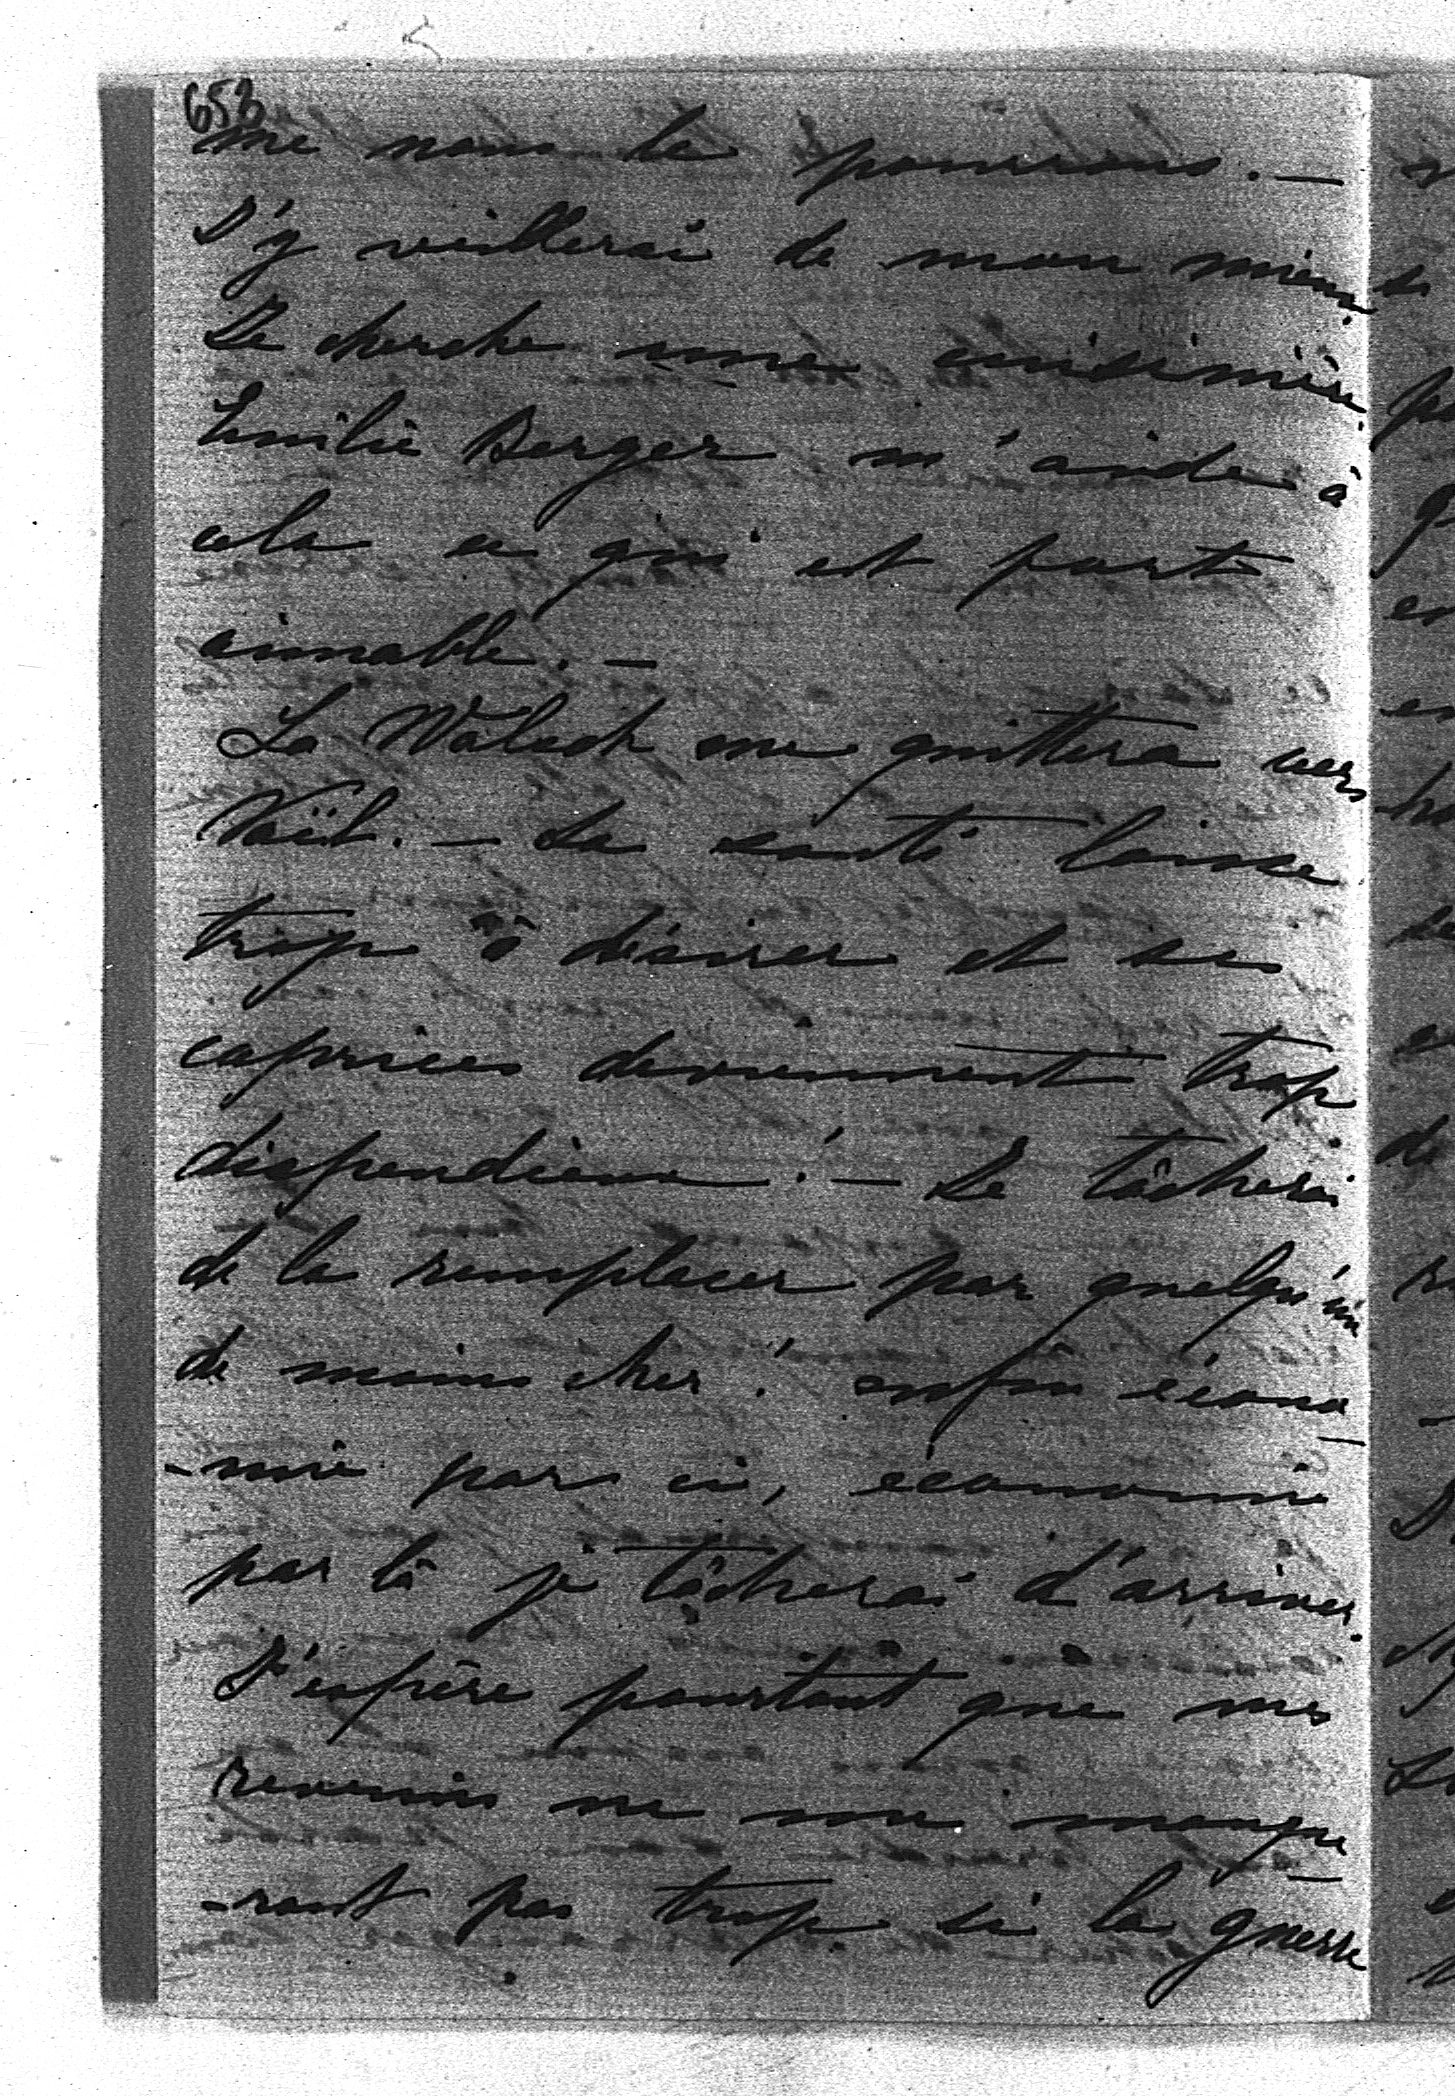 653
me nous le pourrons. —
J'y veillerai de mon mieux.
Je cherche une cuisinière,
Emilie Berger m'aide à
cela ce qui est fort
aimable. —
La Walsch me quittera vers
Noël. — Sa santé laisse
trop à désirer et ses
caprices deviennent trop
dispendieux! — Je tâcherai
de la remplacer par quelqu'un
de moins cher! enfin écono-
-mie par ci, économie
par là je tâcherai d'arriver.
J'espère pourtant que mes
revenus ne me manque-
-ront pas trop si la guerre